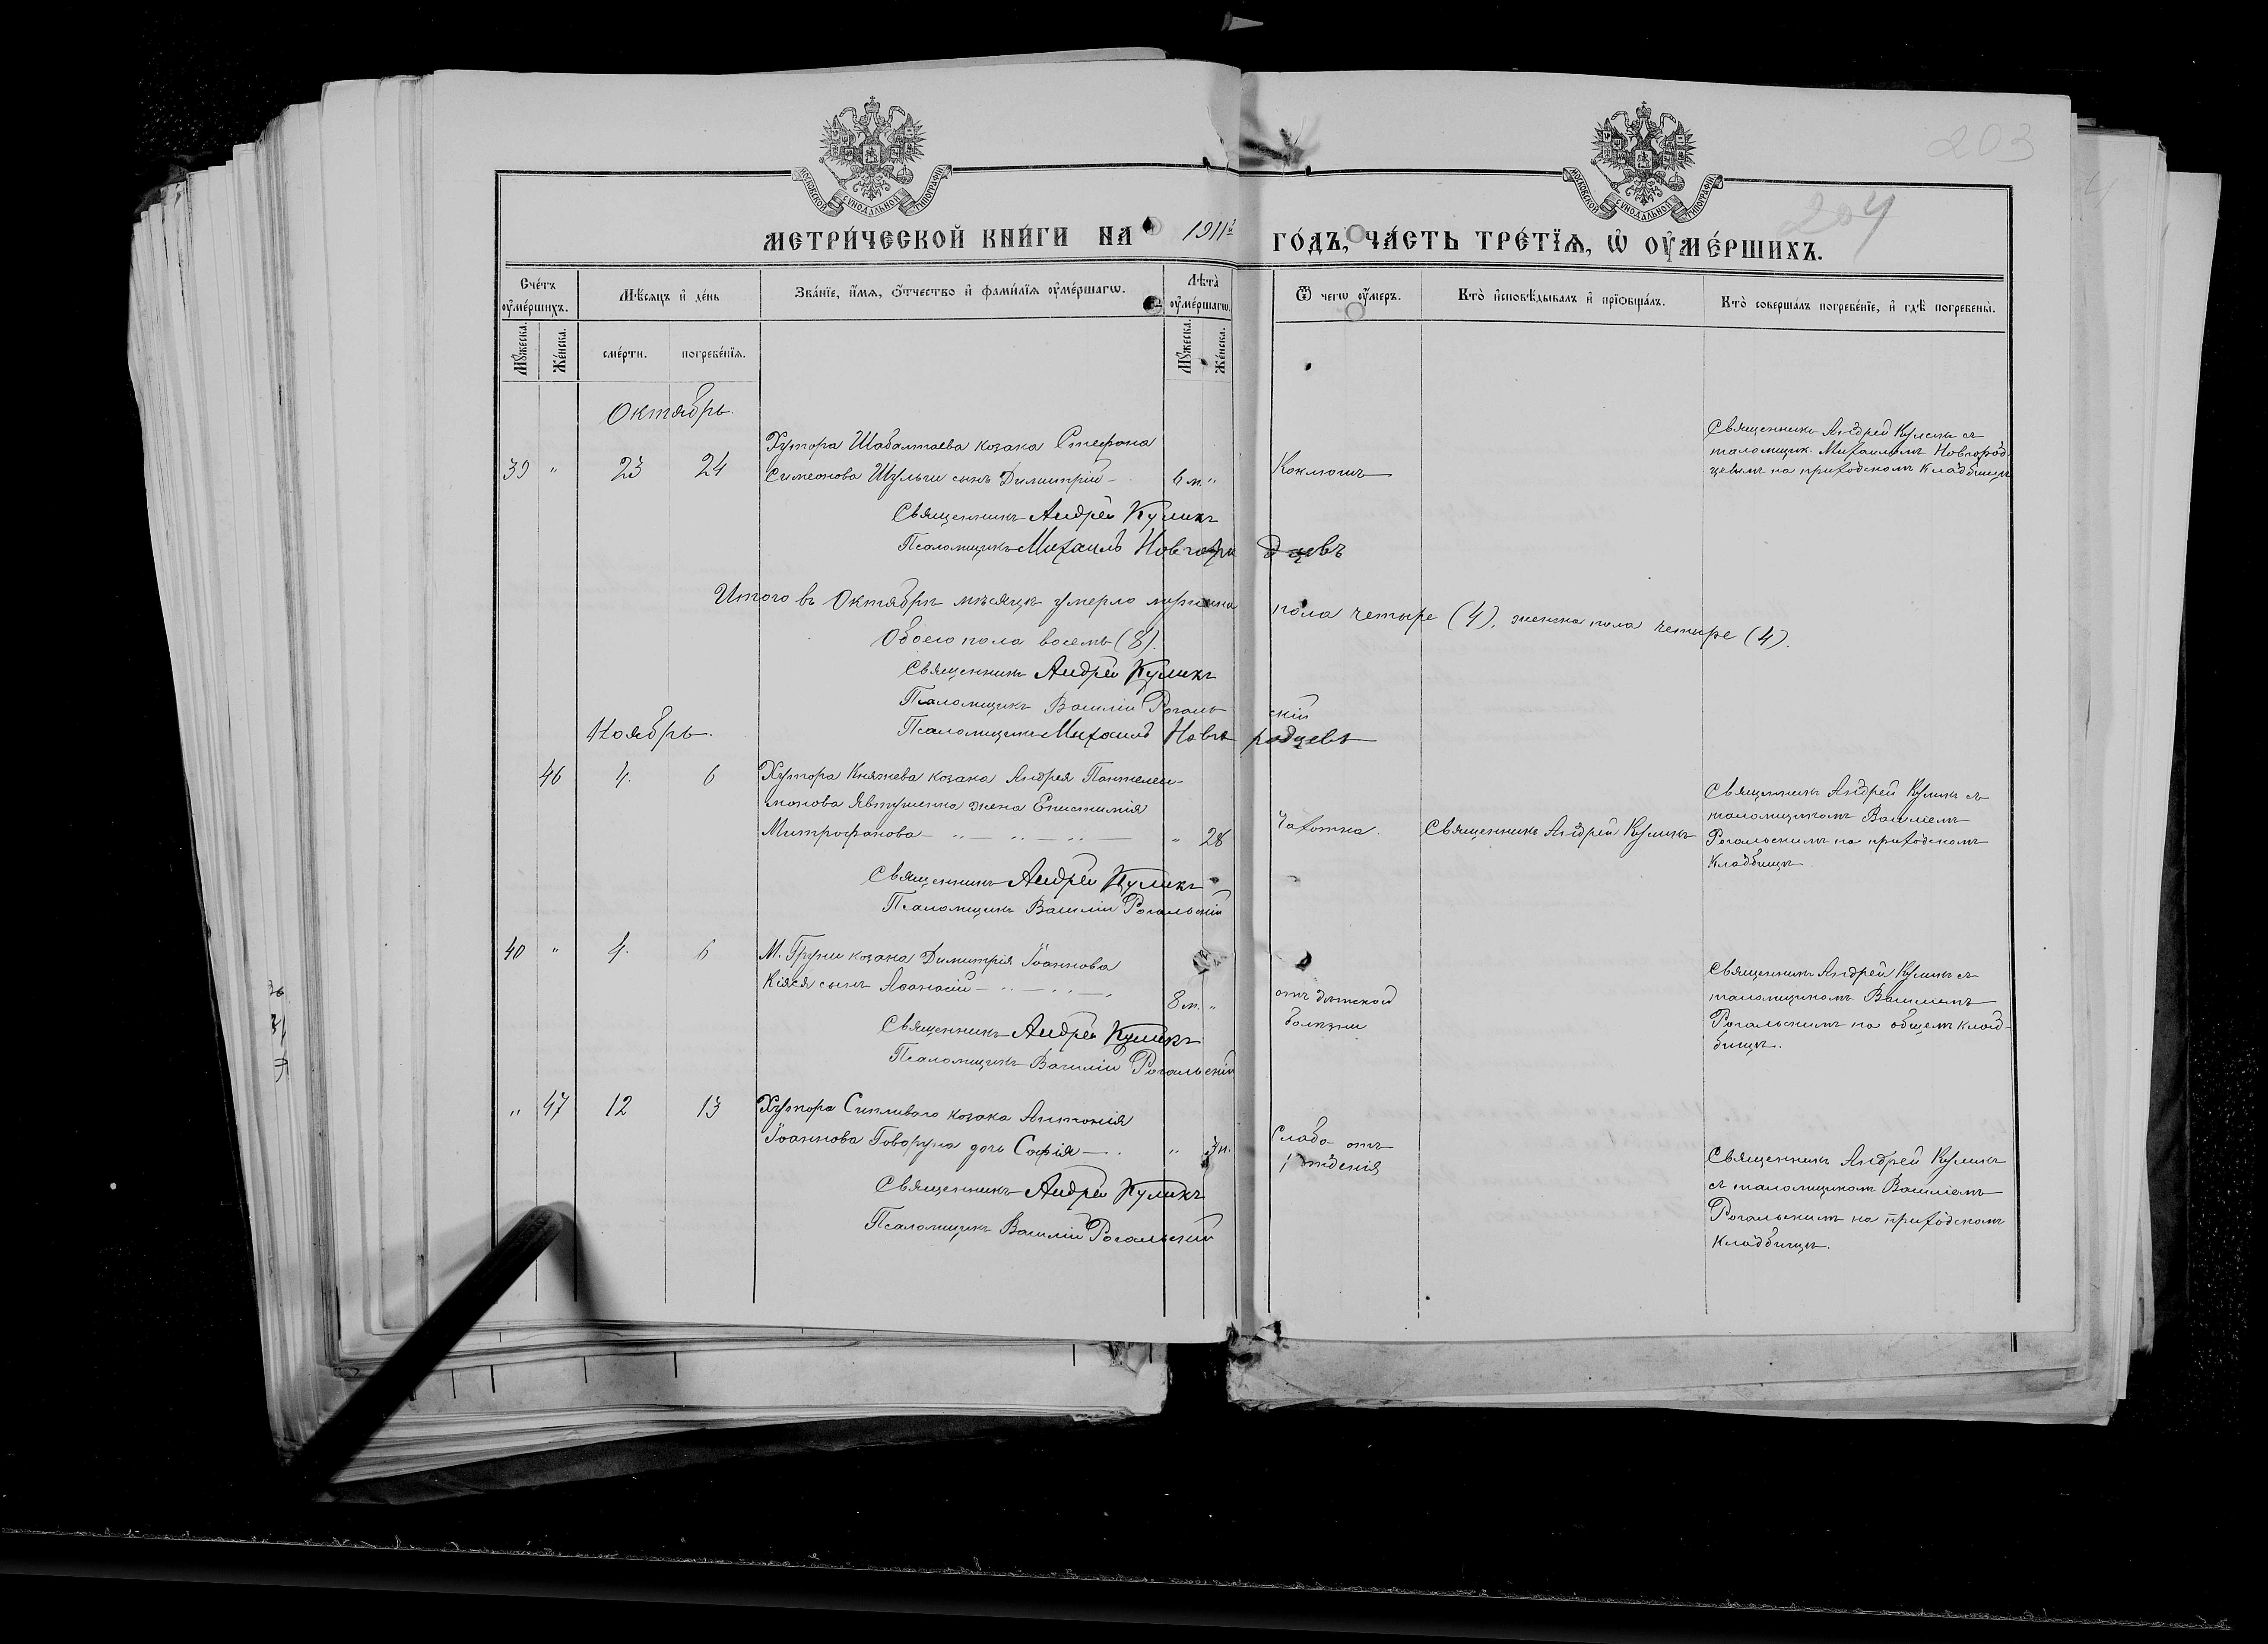 203
204
МОСКОВСКОЙ СУНОДАЛЬНОЙ ТИПОГРАФІИ
МОСКОВСКОЙ СУНОДАЛЬНОЙ ТИПОГРАФІИ
МЕТРИ́ЧЕСКОЙ КНИ́ГИ НА 1911й ГО́ДЪ, ЧА́СТЬ ТРЕ́ТЇѦ, Ѡ ОУМЕ́РШИХЪ.
Сче́тъ оуме́ршихъ.
Мѣ́сяцъ и де́нь
Зва́нїе, и́мѧ, о́тчество и фами́лїѧ оуме́ршагѡ.
Лѣта̀ оуме́ршагѡ.
Ѿ чегѡ оу́меръ.
Кто̀ исповѣ́дывалъ и прїобща́лъ.
Кто̀ соверша́лъ погребе́нїе, и гдѣ̀ погребены̀.
Мꙋ́жеска.
Же́нска.
сме́рти.
погребе́нїѧ.
Мꙋ́жеска.
Же́нска.
Октябрь.
39 " 23 24
Хутора Шабалтаева козака Стефана
Симеонова Шульги сынъ Димитрій
6 м. "
Коклюшъ
Священникъ Андрей Куликъ съ
псаломщик. Михаиломъ Новгород-
цевымъ на приходскомъ кладбищѣ
Священникъ Андрей Куликъ
Псаломщикъ Михаилъ Новгородцевъ
Итого въ Октябрѣ мѣсяцѣ умерло мужеска пола четыре (4), женска пола четыре (4).
Обоего пола восемь (8).
Священникъ Андрей Куликъ
Псаломщикъ Василій Рогальскій
Псаломщикъ Михаилъ Новгородцевъ
Ноябрь.
46 4. 6
Хутора Княжева козака Андрея Пантелеи-
монова Явтушенка жена Епистимія
Митрофанова
" 28
Чахотка.
Священникъ Андрей Куликъ
Священникъ Андрей Куликъ съ
псаломщикомъ Василіемъ
Рогальскимъ на приходскомъ
кладбищѣ
Священникъ Андрей Куликъ
Псаломщикъ Василій Рогальскій
40 " 4. 6
М. Груни козака Димитрія Іоаннова
Кіяся сынъ Аѳанасій
8 м. "
отъ дѣтской
болѣзни
Священникъ Андрей Куликъ съ
псаломщикомъ Василіемъ
Рогальскимъ на общемъ клад-
бищѣ.
Священникъ Андрей Куликъ
Псаломщикъ Василій Рогальскій
" 47 12 13
Хутора Сипливаго козака Антонія
Іоаннова Говоруна дочь Софія
"
Слаба отъ
рожденія
Священникъ Андрей Куликъ
съ псаломщикомъ Василіемъ
Рогальскимъ на приходскомъ
кладбищѣ.
Священникъ Андрей Куликъ
Псаломщикъ Василій Рогальскій